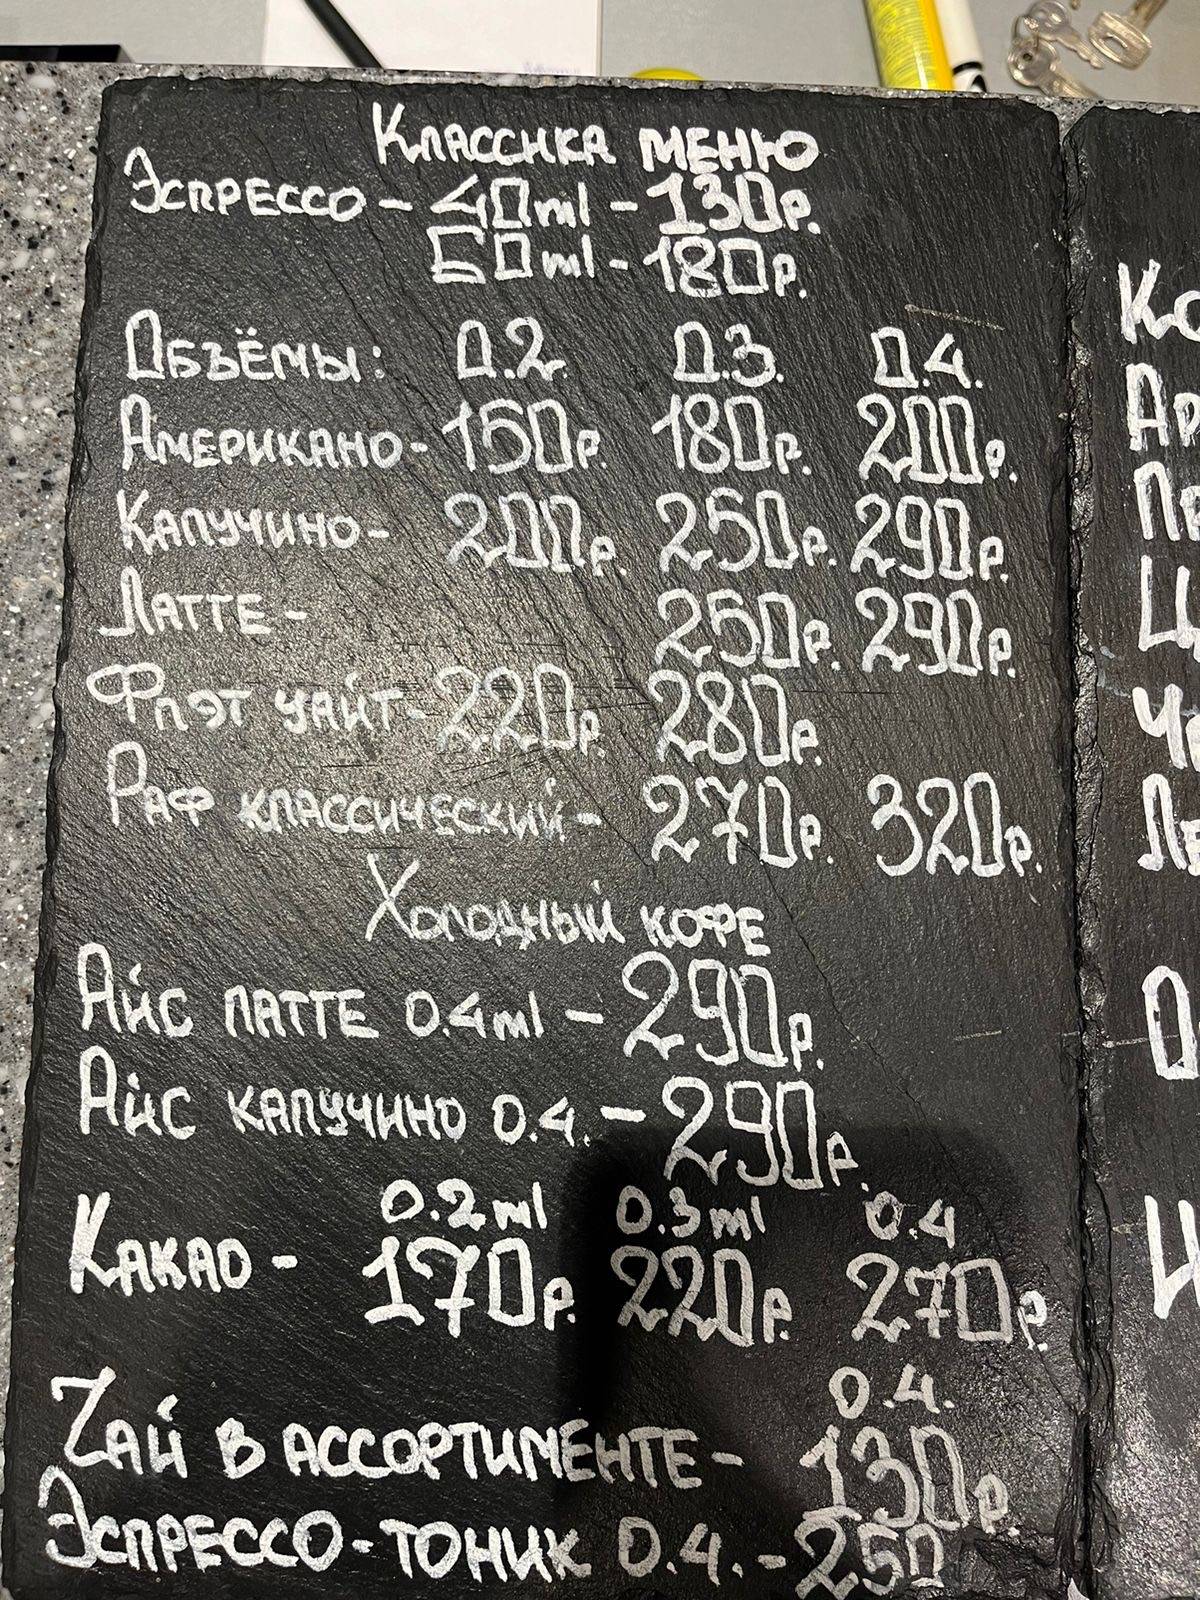 Классика меню
Эспрессо - 40ml - 130р.
60ml - 180р.
Объёмы: 0.2 0.3. 0.4.
Американо - 150р. 180р. 200р.
Капучино - 200р. 250р. 290р.
Латте - 250р. 290р.
Флэт уайт - 220р. 280р.
Раф классический - 270р. 320р.
Холодный кофе
Айс латте 0.4ml - 290р.
Айс капучино 0.4. - 290р.
0.2ml 0.3ml 0.4
Какао - 170р. 220р. 270р.
0.4.
Чай в ассортименте - 130р.
Эспрессо-тоник 0.4. - 250